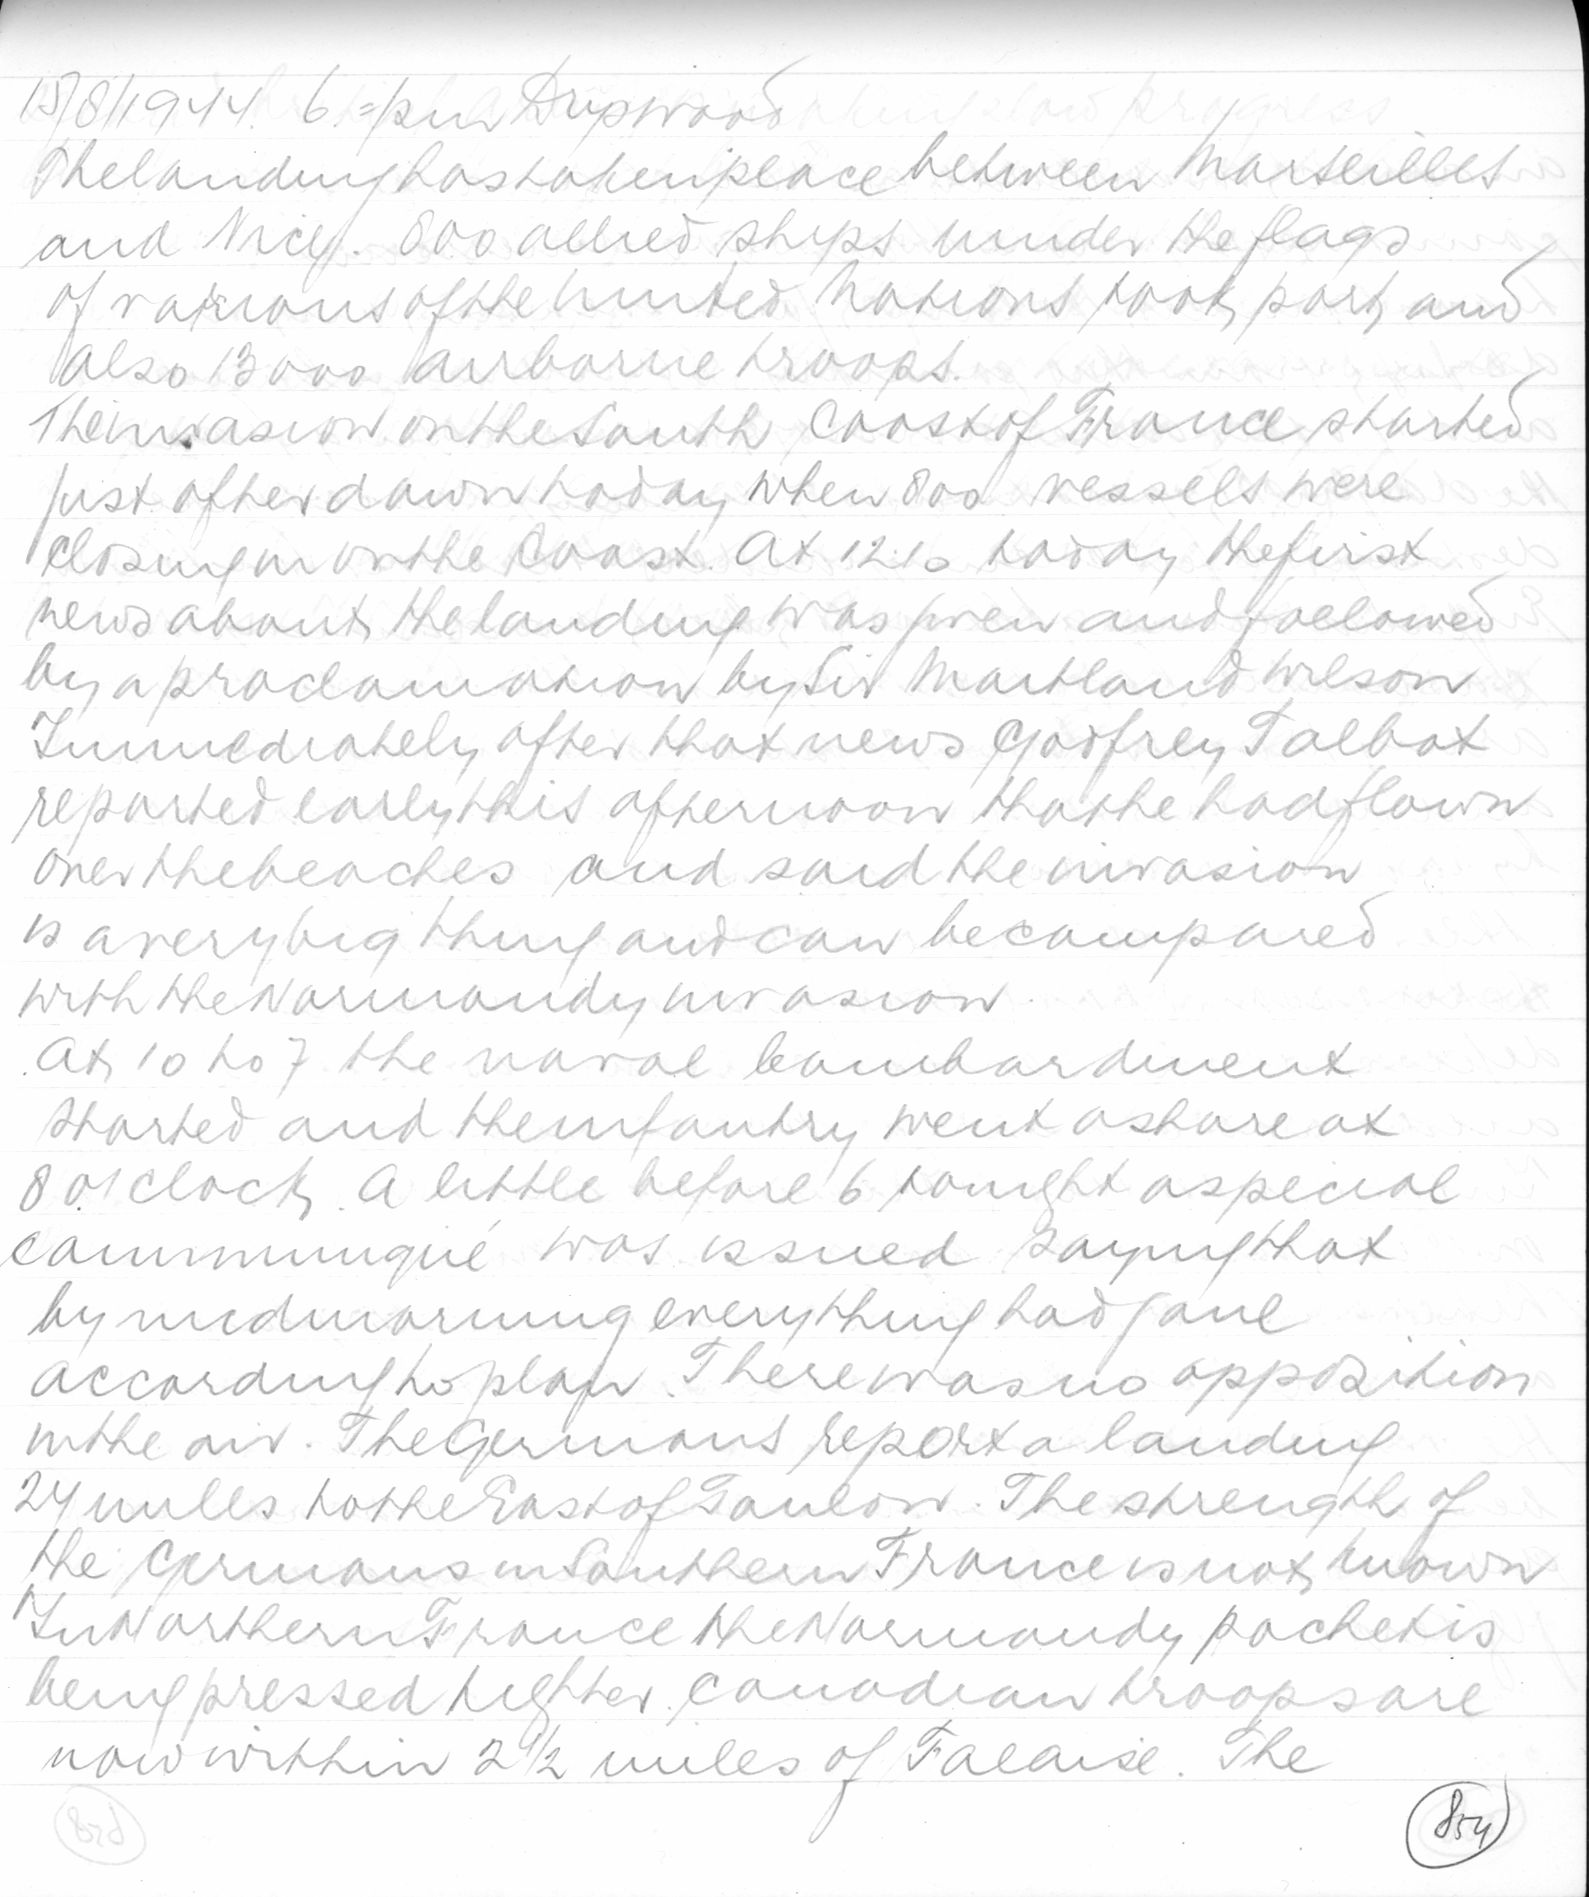 15/8/1944. 6.= pm Dripwood
The landing has taken place between Marseilles
and Nice. 800 allied ships under the flags
of various of the United Nations took part and
also 13000 airborne troops.
The invasion on the South Coast of France started
just after dawn today when 800 vessels were
closing in on the Coast. At 12.10 today the first
news about the landing was given and followed
by a proclamation by Sir Maitland Wilson
Immediately after that news Godfrey Talbot
reported early this afternoon that he had flown
over the beaches and said the invasion
is a very big thing and can be compared
with the Normandy invasion.
At 10 to 7 the naval bombardment
started and the infantry went ashore at
8 o'clock. A little before 6 tonight a special
communiqué was issued saying that
by midmorning everything had gone
according to plan. There was no opposition
in the air. The Germans report a landing
24 miles to the East of Toulon. The strength of
the Germans in Southern France is not known
In Northern France the Normandy pocket is
being pressed tighter. Canadian troops are
now within 2 1/2 miles of Falaise. The
854